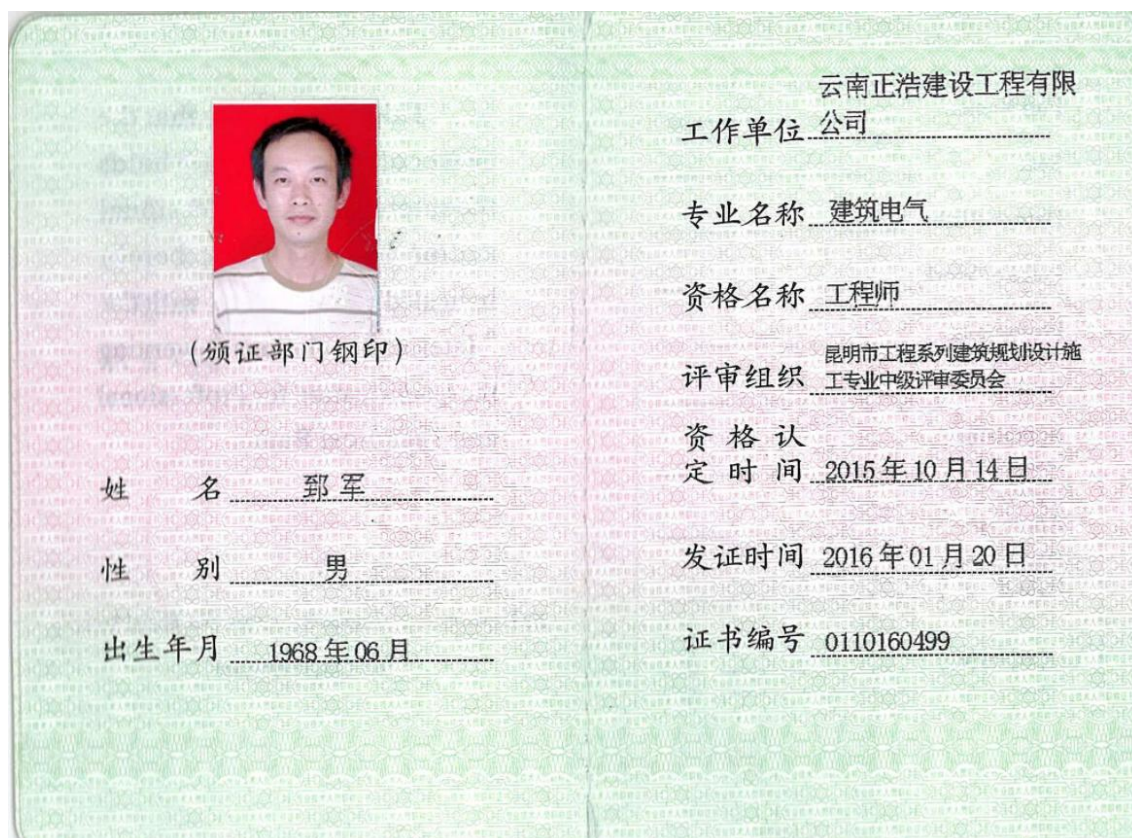 (颁证部门钢印)
姓 名 郅 军
性 别 男
出生年月 1968 年 06 月
云南正浩建设工程有限
工作单位 公司
专业名称 建筑电气
资格名称 工程师
昆明市工程系列建筑规划设计施
评审组织 工专业中级评审委员会
资 格 认
定 时 间 2015 年 10 月 14 日
发证时间 2016 年 01 月 20 日
证书编号 0110160499